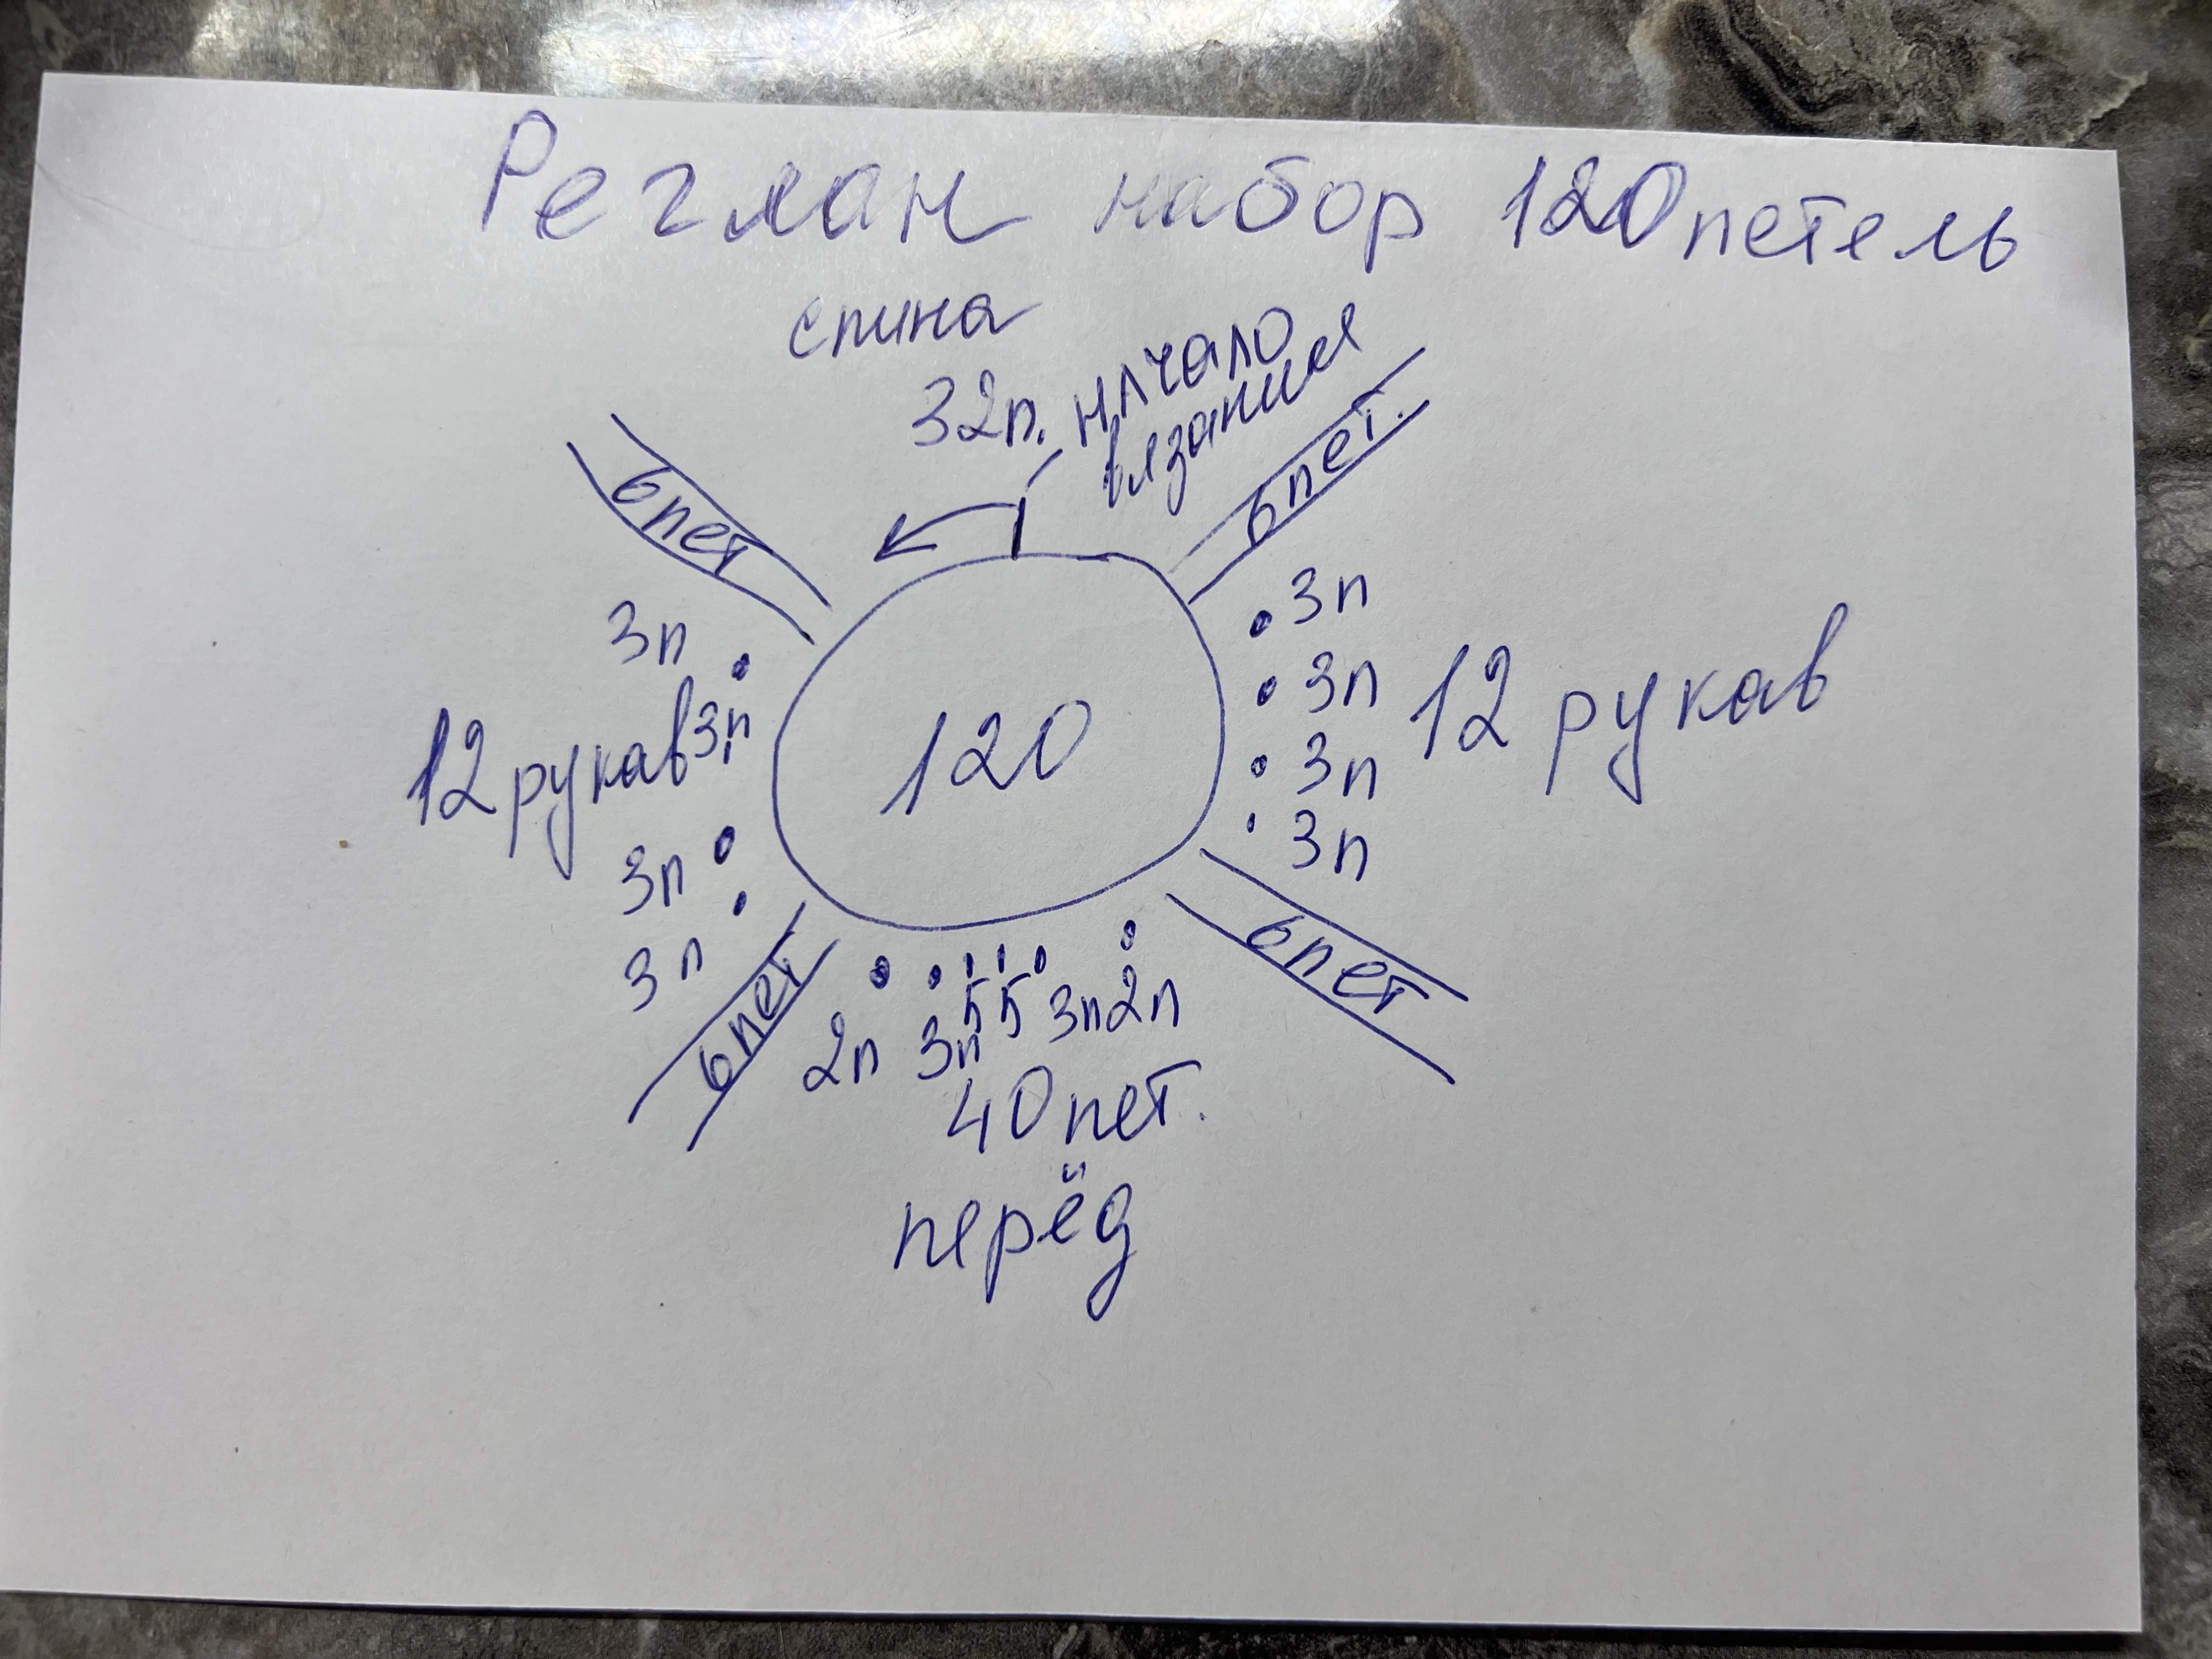 Реглан набор 120 петель
спина
32п. начало
вязания
6 пет
6 пет.
3п
3п
12 рукав 3п
3п
12 рукав
120
3п
3п
3п
3п
6 пет
6 пет
2п 3п 5 5 3п 2п
40 пет.
перёд